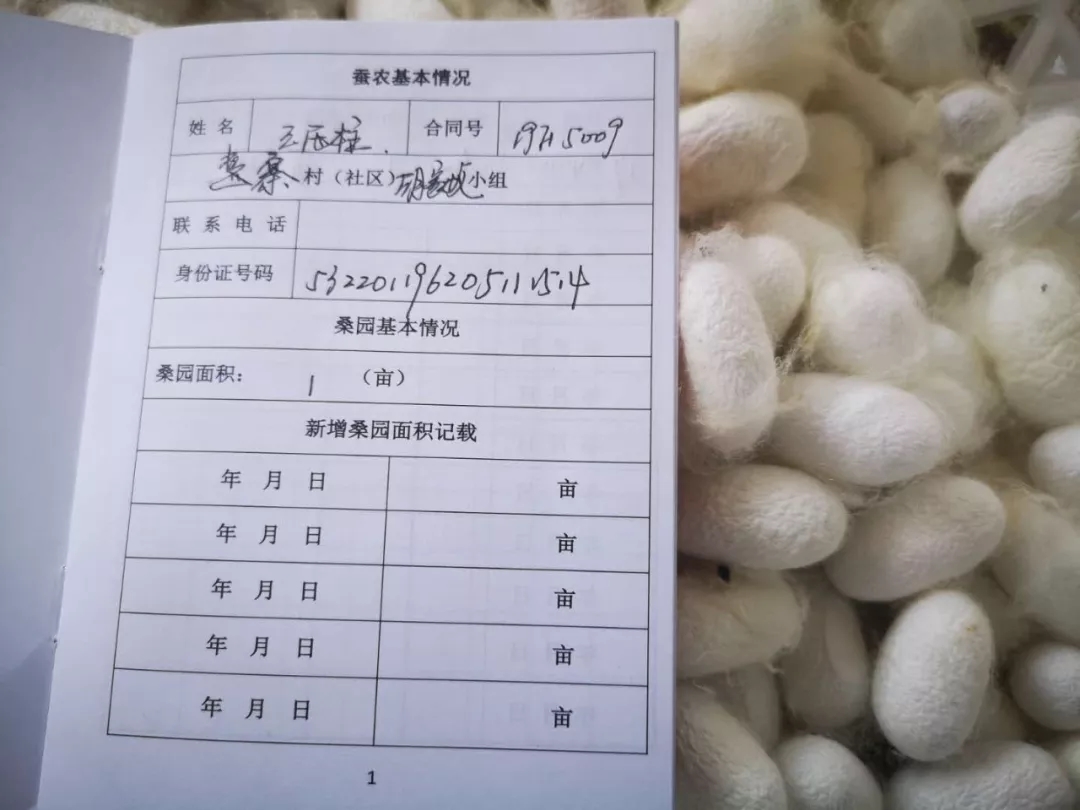 蚕农基本情况
姓名 王民柱 合同号 19H5009
村（社区） 小组
联系电话
身份证号码 532201196205111514
桑园基本情况
桑园面积： 1 （亩）
新增桑园面积记载
年 月 日 亩
年 月 日 亩
年 月 日 亩
年 月 日 亩
年 月 日 亩
1